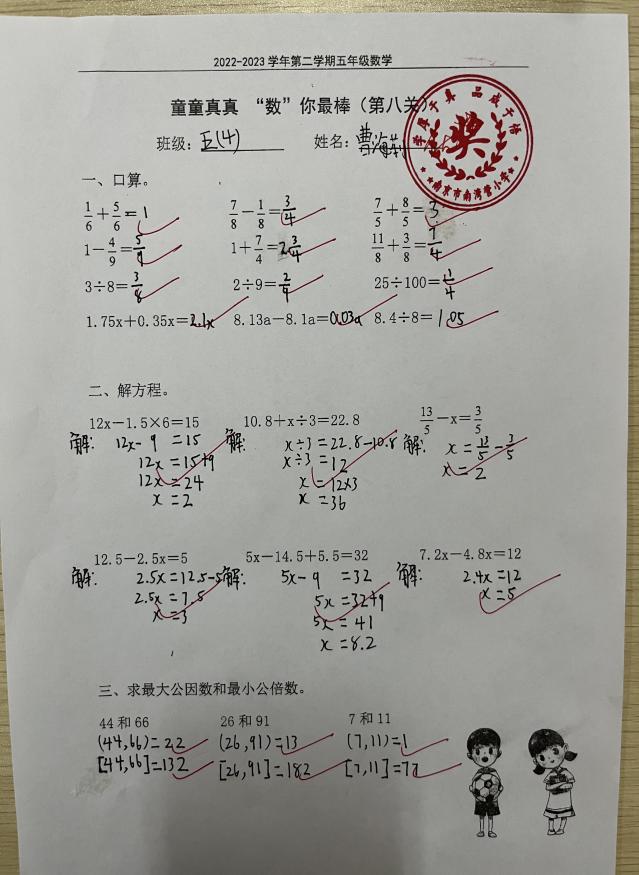 2022-2023 学年第二学期五年级数学
童童真真 “数”你最棒（第八关）
班级：五(4) 姓名：曹海
学度于真 品成于悟
奖
南京市南湾营小学
一、口算。
1/6+5/6=1 7/8-1/8=3/4 7/5+8/5=3
1-4/9=5/9 1+7/4=2 3/4 11/8+3/8=7/4
3÷8=3/8 2÷9=2/9 25÷100=1/4
1.75x+0.35x=2.1x 8.13a-8.1a=0.03a 8.4÷8=1.05
二、解方程。
12x-1.5×6=15 10.8+x÷3=22.8 13/5-x=3/5
解: 12x-9=15 解: x÷3=22.8-10.8 解: x=13/5-3/5
12x=15+9 x÷3=12 x=2
12x=24 x=12×3
x=2 x=36
12.5-2.5x=5 5x-14.5+5.5=32 7.2x-4.8x=12
解: 2.5x=12.5-5 解: 5x-9=32 解: 2.4x=12
2.5x=7.5 5x=32+9 x=5
x=3 5x=41
x=8.2
三、求最大公因数和最小公倍数。
44 和 66 26 和 91 7 和 11
(44,66)=22 (26,91)=13 (7,11)=1
[44,66]=132 [26,91]=182 [7,11]=77